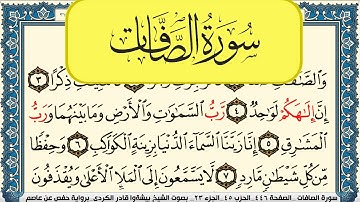 سُورَةُ الصَّافَّاتِ
وَالصَّٰٓفَّٰتِ
ذِكْرًا ٣
إِنَّ إِلَٰهَكُمْ لَوَٰحِدٌ ٤ رَّبُّ السَّمَٰوَٰتِ وَالْأَرْضِ وَمَا بَيْنَهُمَا وَرَبُّ
الْمَشَٰرِقِ ٥ إِنَّا زَيَّنَّا السَّمَآءَ الدُّنْيَا بِزِينَةٍ الْكَوَاكِبِ ٦ وَحِفْظًا
مِّن كُلِّ شَيْطَٰنٍ مَّارِدٍ ٧ لَّا يَسَّمَّعُونَ إِلَى الْمَلَإِ الْأَعْلَىٰ وَيُقْذَفُونَ
سورة الصافات الصفحة ٤٤٦ الحزب ٤٥ الجزء ٢٣ بصوت الشيخ بيشەوا قادر الكردي. برواية حفص عن عاصم